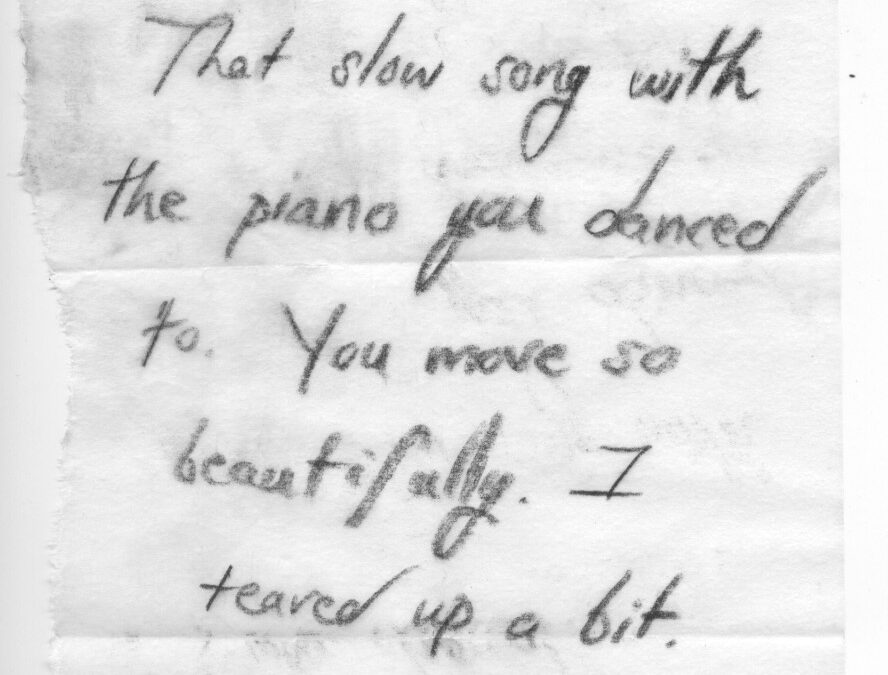 That slow song with
the piano you danced
to. You move so
beautifully. I
teared up a bit.